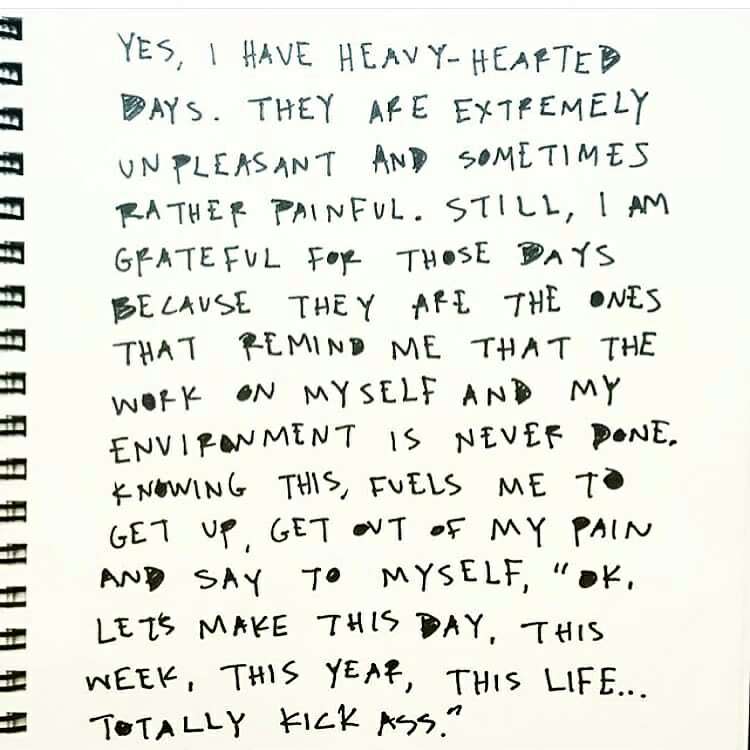 YES, I HAVE HEAVY-HEARTED
DAYS. THEY ARE EXTREMELY
UNPLEASANT AND SOMETIMES
RATHER PAINFUL. STILL, I AM
GRATEFUL FOR THOSE DAYS
BECAUSE THEY ARE THE ONES
THAT REMIND ME THAT THE
WORK ON MYSELF AND MY
ENVIRONMENT IS NEVER DONE.
KNOWING THIS, FUELS ME TO
GET UP, GET OUT OF MY PAIN
AND SAY TO MYSELF, "OK,
LET'S MAKE THIS DAY, THIS
WEEK, THIS YEAR, THIS LIFE...
TOTALLY KICK ASS."